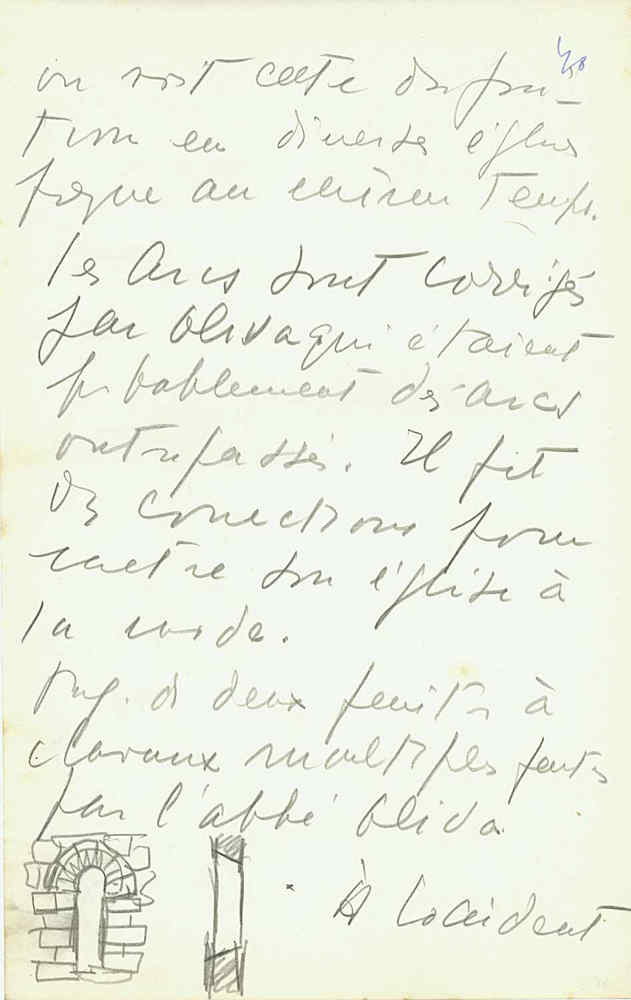 on voit cette disposi-
tion en diverses églises
presque au même temps.
les arcs sont corrigés
par Oliva qui étaient
probablement des arcs
outrepassés. Il fit
des corrections pour
mettre son église à
la mode.
de deux fenêtres à
claveaux multiples faites
par l'abbé Oliva
À l'occident